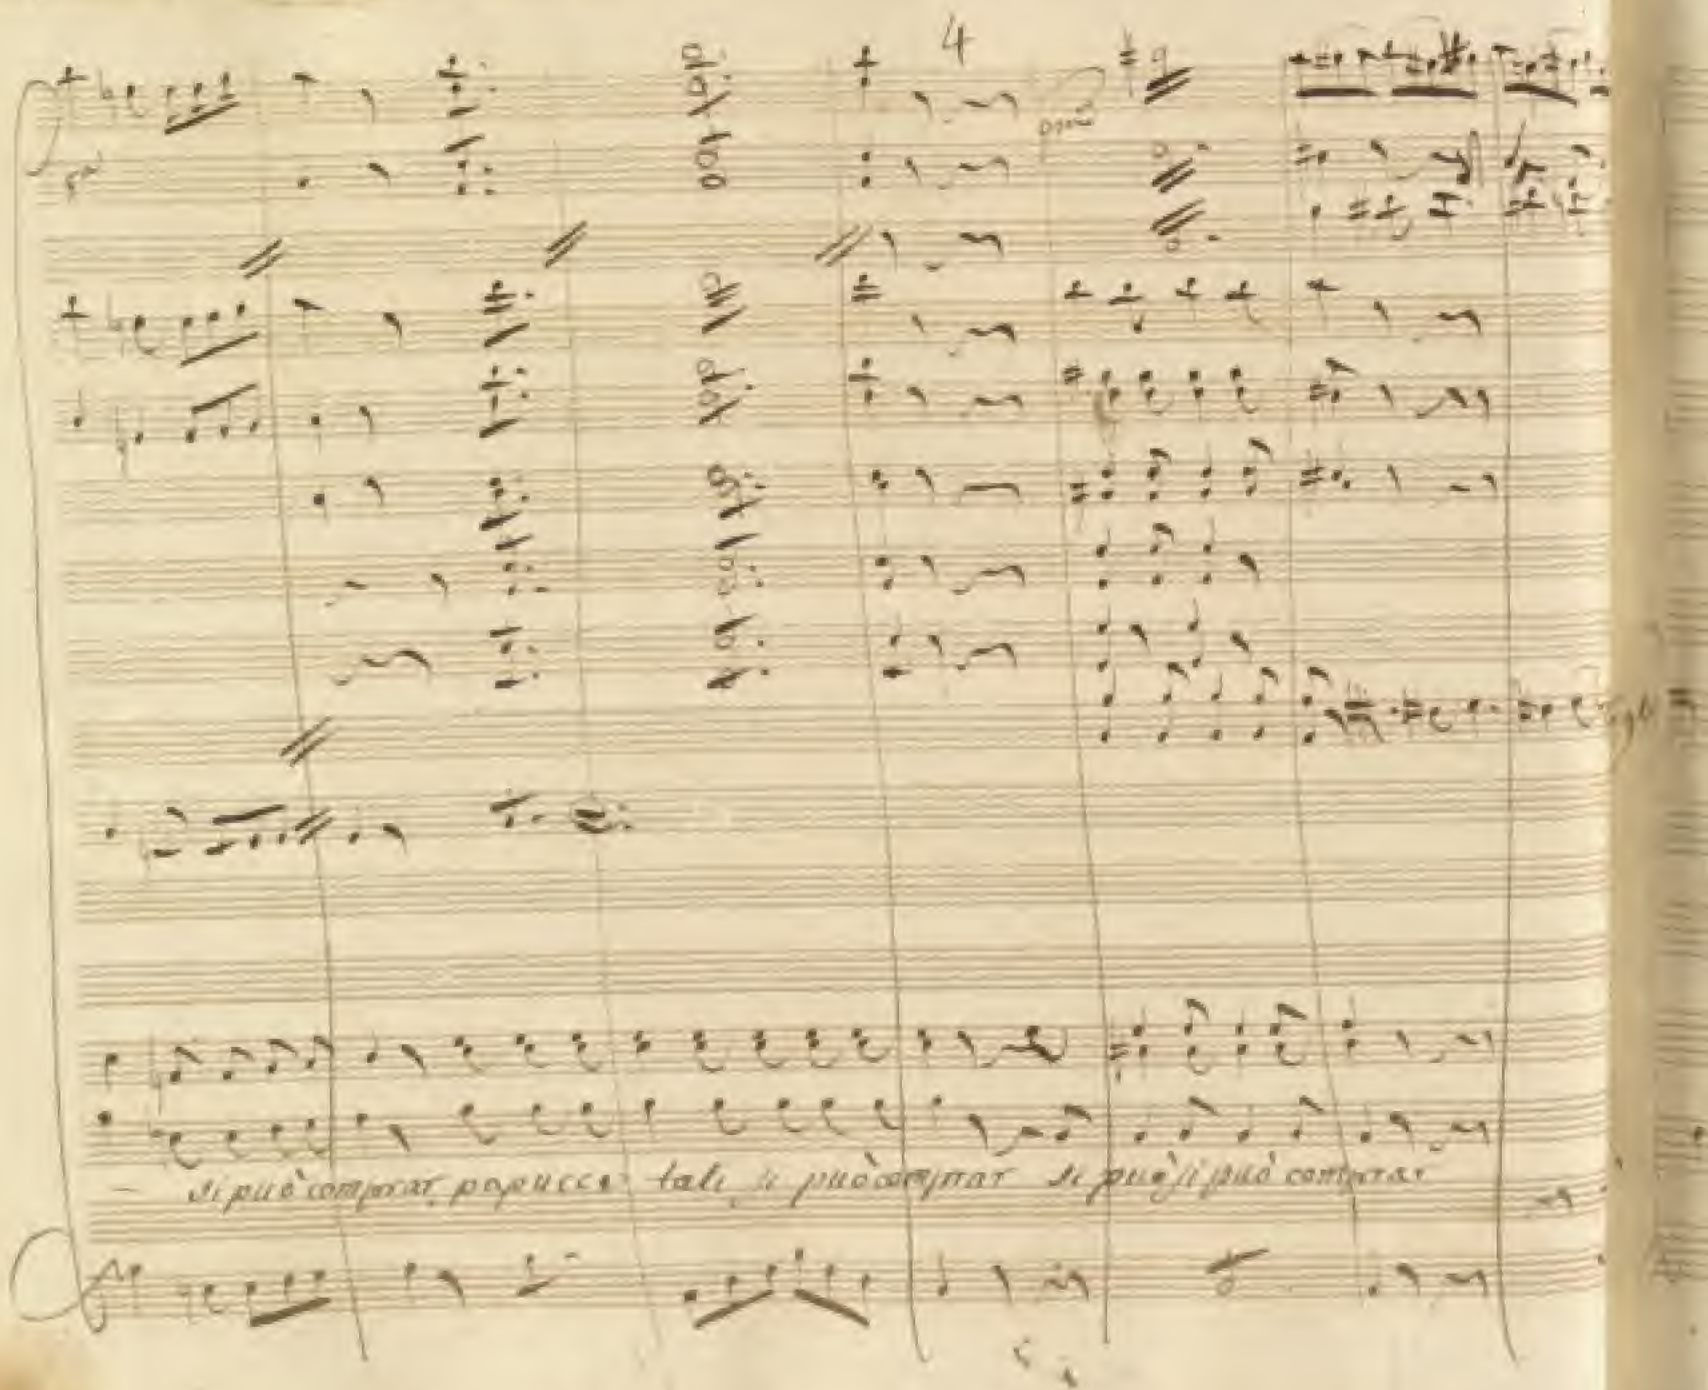 4
8va
si può comprar papucce tali si può comprar si può si può comprar